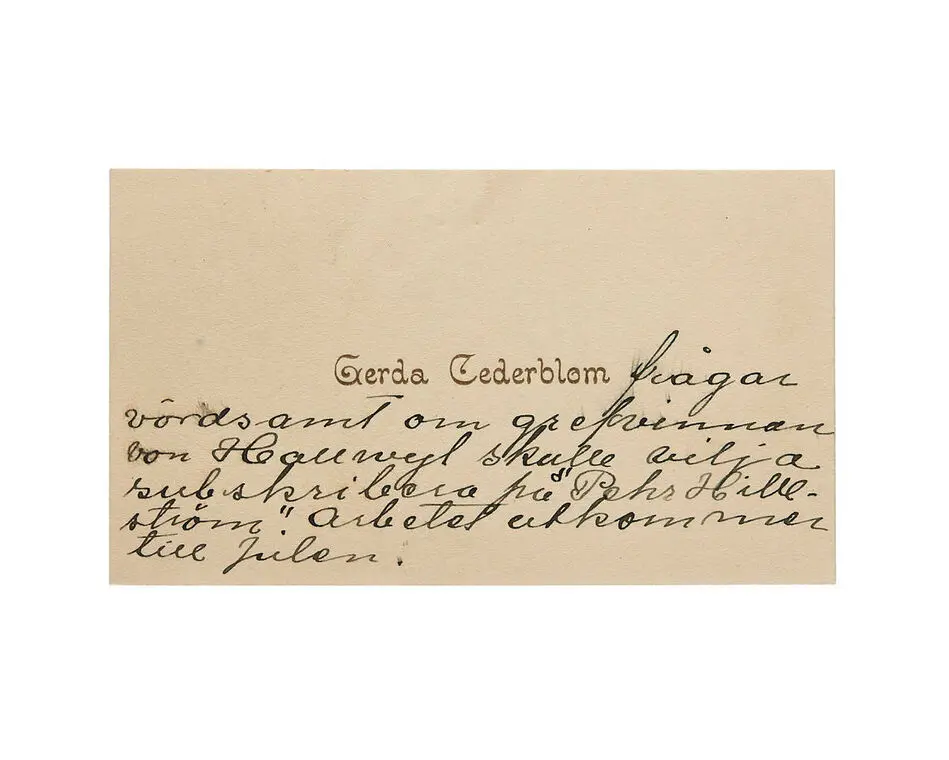 Gerda Cederblom frågar
vördsamt om grefvinnan
von Hallwyl skulle vilja
subskribera på "Pehr Hille-
ström". Arbetet utkommer
till julen.